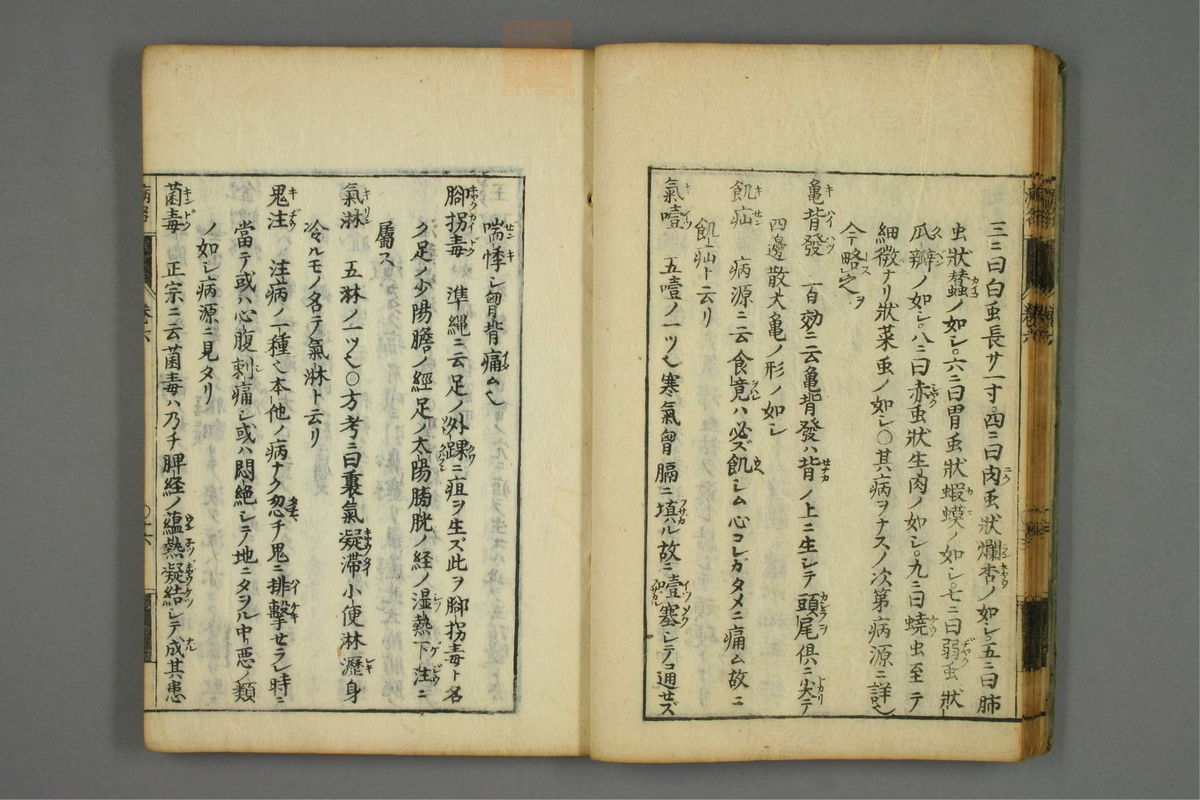 三ニ曰白虫長サ一寸。四ニ曰肉虫狀爛杏ノ如シ。五ニ曰肺
虫狀蠶ノ如シ。六ニ曰胃虫狀蝦蟆ノ如シ。七ニ曰弱虫狀
瓜瓣ノ如シ。八ニ曰赤虫狀生肉ノ如シ。九ニ曰蟯虫至テ
細微ナリ狀菜虫ノ如シ○其病ヲナスノ次第病源ニ詳也
今略之ヲ
亀背發 百効ニ云亀背發ハ背ノ上ニ生シテ頭尾俱ニ尖テ
四邊散大亀ノ形ノ如シ
飢疝 病源ニ云食竟ハ必ズ飢シム心コレガタメニ痛ム故ニ
飢疝ト云リ
氣噎 五噎ノ一ツ也寒氣胷膈ニ填ハル故ニ噎塞シテ通せズ
喘悸シ胷背痛ム也
腳拐毒 準繩ニ云足ノ外踝ニ疽ヲ生ズ此ヲ腳拐毒ト名
ク足ノ少陽膽ノ經足ノ太陽膀胱ノ経ノ湿熱下注ニ
屬ス
氣淋 五淋ノ一ツ也○方考ニ曰裏氣凝滞小便淋瀝身
冷ルモノ名テ氣淋ト云リ
鬼注 注病ノ一種也本他ノ病ナク忽チ鬼ニ排擊せラレ時ニ
當テ或ハ心腹刺痛シ或ハ悶絶シテ地ニタヲル中リ悪ノ類
ノ如シ病源ニ見タリ
菌毒 正宗ニ云菌毒ハ乃チ脾経ノ蘊熱凝結シテ成其患